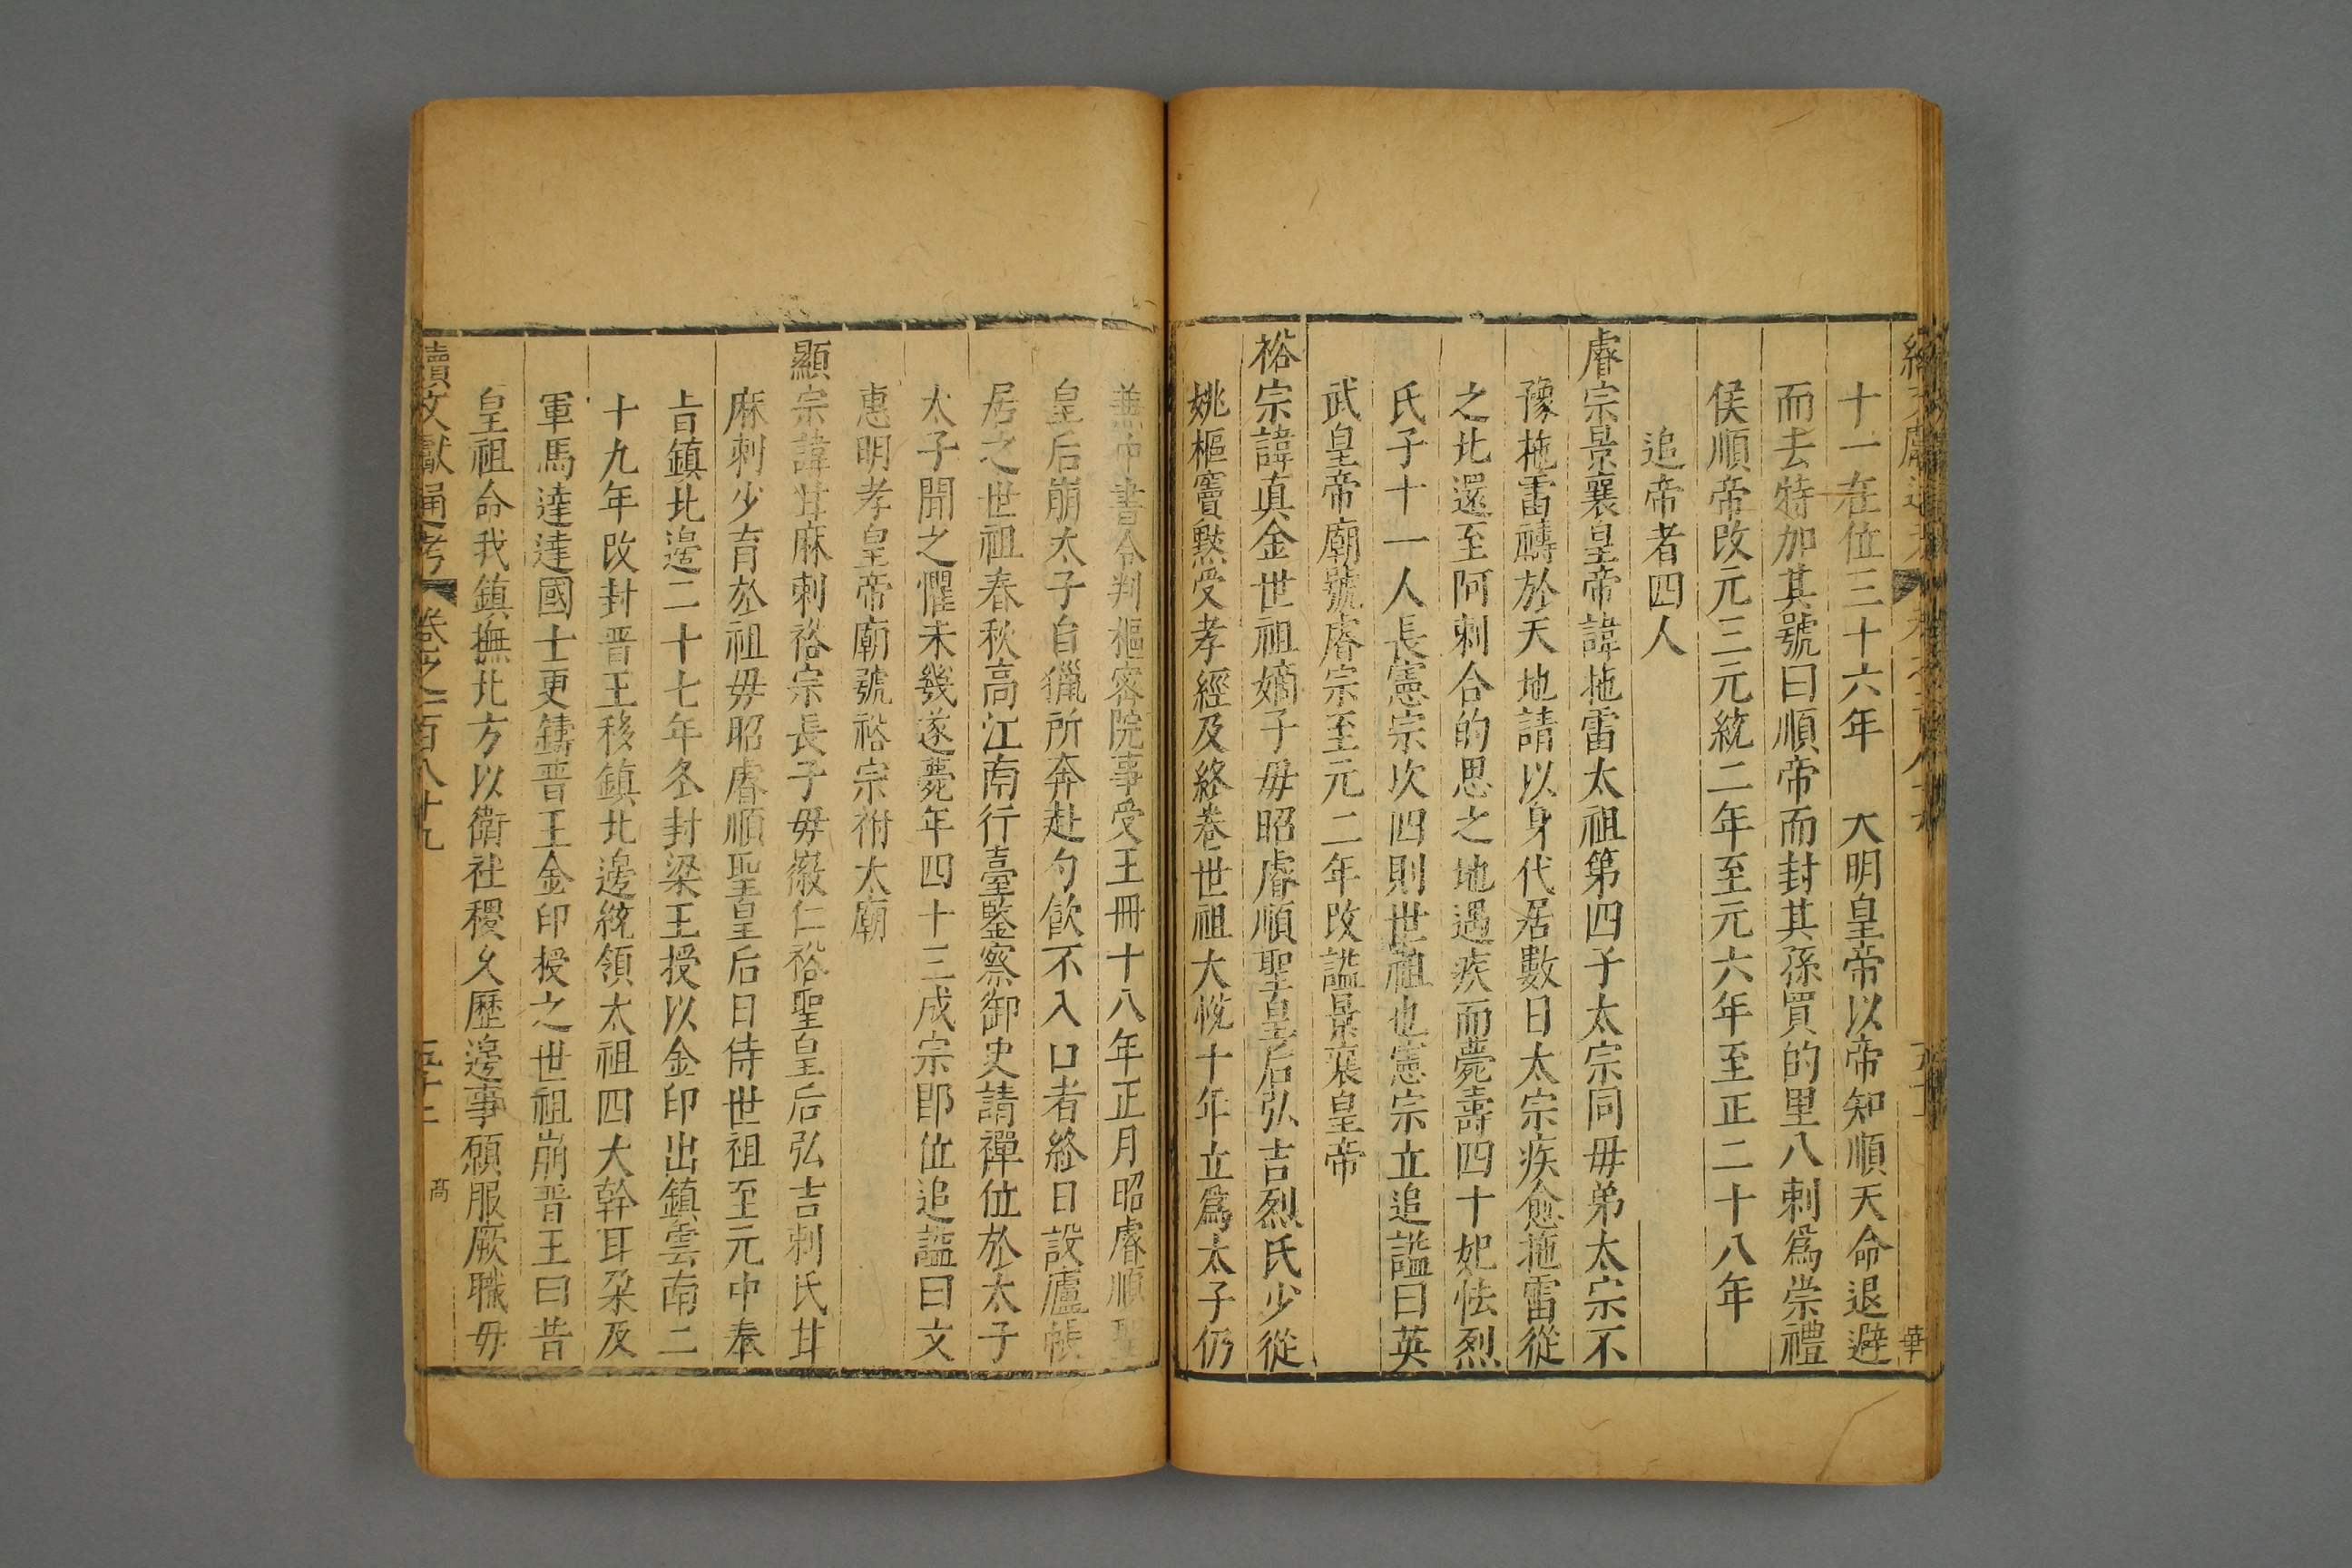 十一在位三十六年　大明皇帝以帝知順天命退避
而去特加其號曰順帝而封其孫買的里八剌爲崇禮
侯順帝改元三元統二年至元六年至正二十八年
追帝者四人
睿宗景襄皇帝諱拖雷太祖第四子太宗同毋弟太宗不
豫拖雷禱於天地請以身代居數日太宗疾愈拖雷從
之北還至阿剌合的思之地遇疾而薨壽四十妃怯烈
氏子十一人長憲宗次四則世祖也憲宗立追謚曰英
武皇帝廟號睿宗至元二年改謚景襄皇帝
裕宗諱真金世祖嫡子毋昭睿順聖皇后弘吉烈氏少從
姚樞竇黙受孝經及終卷世祖大悅十年立爲太子仍
兼中書令判樞密院事受王冊十八年正月昭睿順聖
皇后崩太子自獵所奔赴勺飲不入口者終日設廬帳
居之世祖春秋高江南行臺監察御史請禪位於太子
太子聞之懼未幾遂薨年四十三成宗即位追謚曰文
惠明孝皇帝廟號裕宗祔太廟
顯宗諱甘麻剌裕宗長子毋徽仁裕聖皇后弘吉剌氏甘
麻剌少育於祖毋昭睿順聖皇后日侍世祖至元中奉
旨鎮北邊二十七年冬封梁王授以金印出鎮雲南二
十九年改封晋王移鎮北邊統領太祖四大斡耳朶及
軍馬達達國土更鑄晋王金印授之世祖崩晋王曰昔
皇祖命我鎮撫北方以衛社稷久歷邊事願服厥職毋
續文獻通考　卷之二百八十九　五十二　高
華